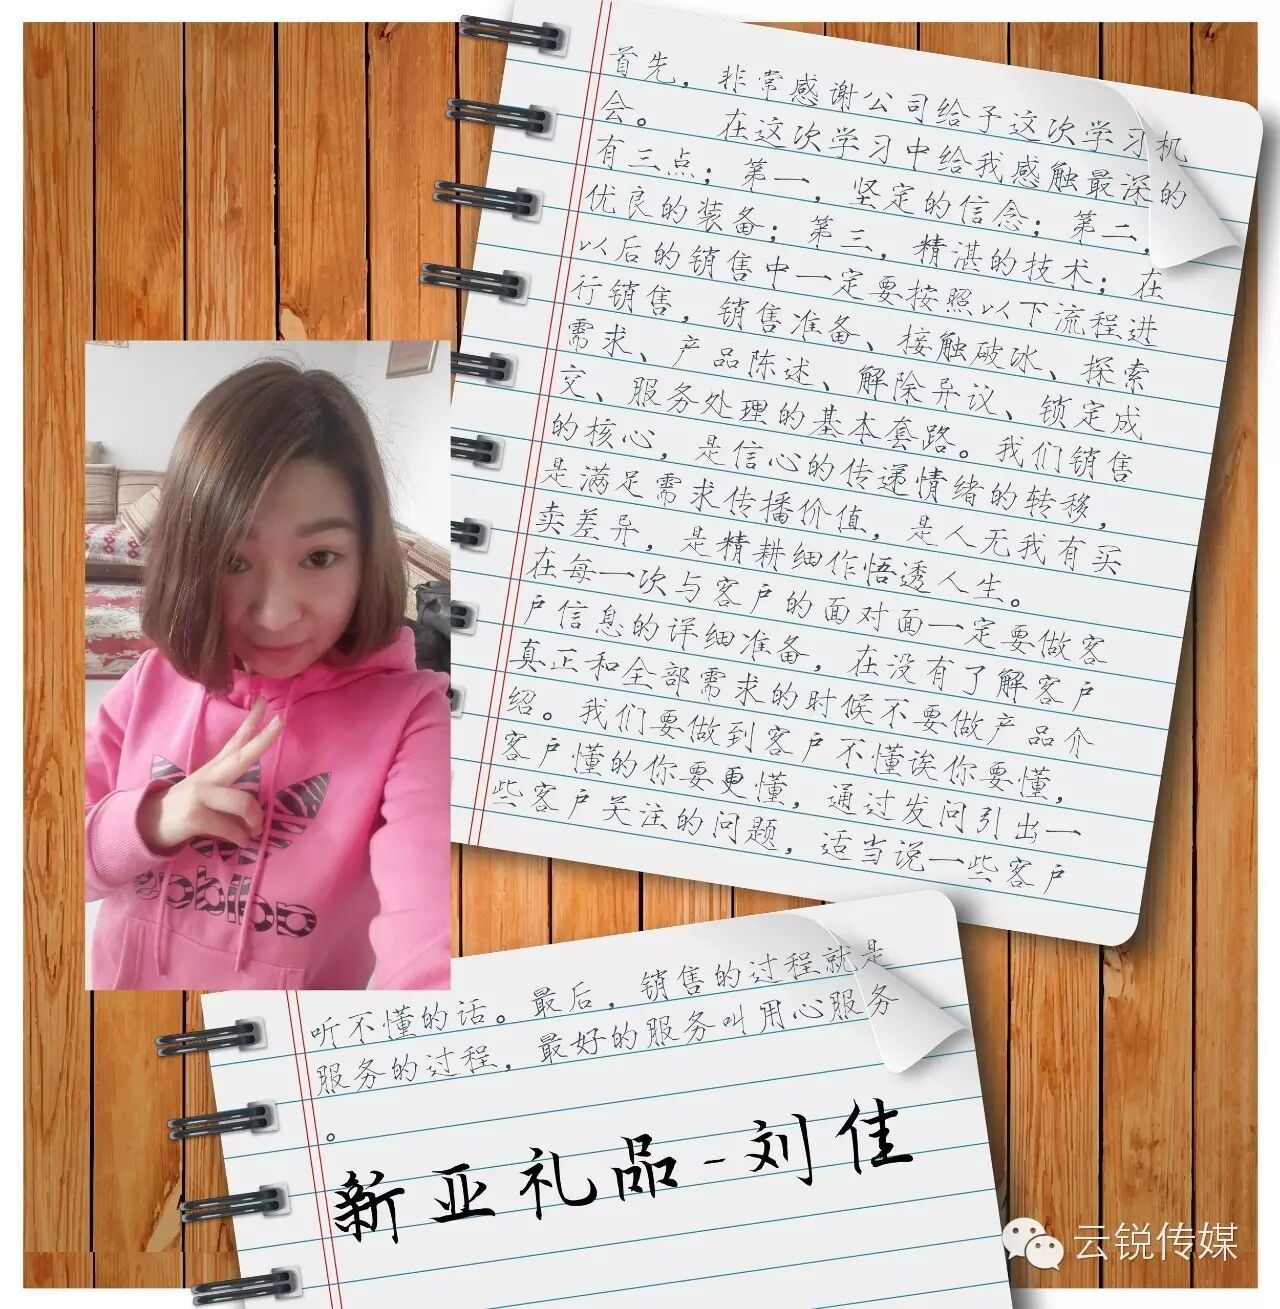 首先，非常感谢公司给予这次学习机
会。 在这次学习中给我感触最深的
有三点；第一，坚定的信念；第二，
优良的装备；第三，精湛的技术；在
以后的销售中一定要按照以下流程进
行销售，销售准备、接触破冰、探索
需求、产品陈述、解除异议、锁定成
交、服务处理的基本套路。我们销售
的核心，是信心的传递情绪的转移，
是满足需求传播价值，是人无我有买
卖差异，是精耕细作悟透人生。
在每一次与客户的面对面一定要做客
户信息的详细准备，在没有了解客户
真正和全部需求的时候不要做产品介
绍。我们要做到客户不懂诶你要懂，
客户懂的你要更懂，通过发问引出一
些客户关注的问题，适当说一些客户
听不懂的话。最后，销售的过程就是
服务的过程，最好的服务叫用心服务
。
新亚礼品-刘佳
adidas
云锐传媒